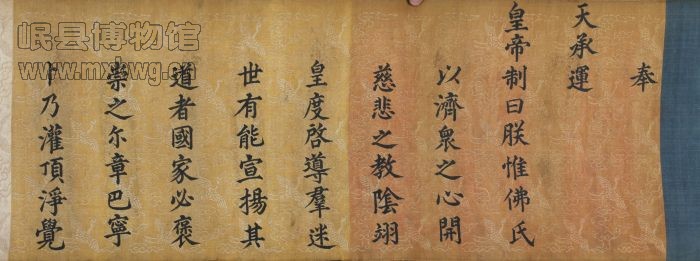 奉
天承運
皇帝制曰朕惟佛氏
以濟衆之心開
慈悲之教陰翊
皇度啓導羣迷
世有能宣揚其
道者國家必褒
崇之尔章巴寧
卜乃灌頂淨覺
岷县博物馆
www.mxbwg.cn